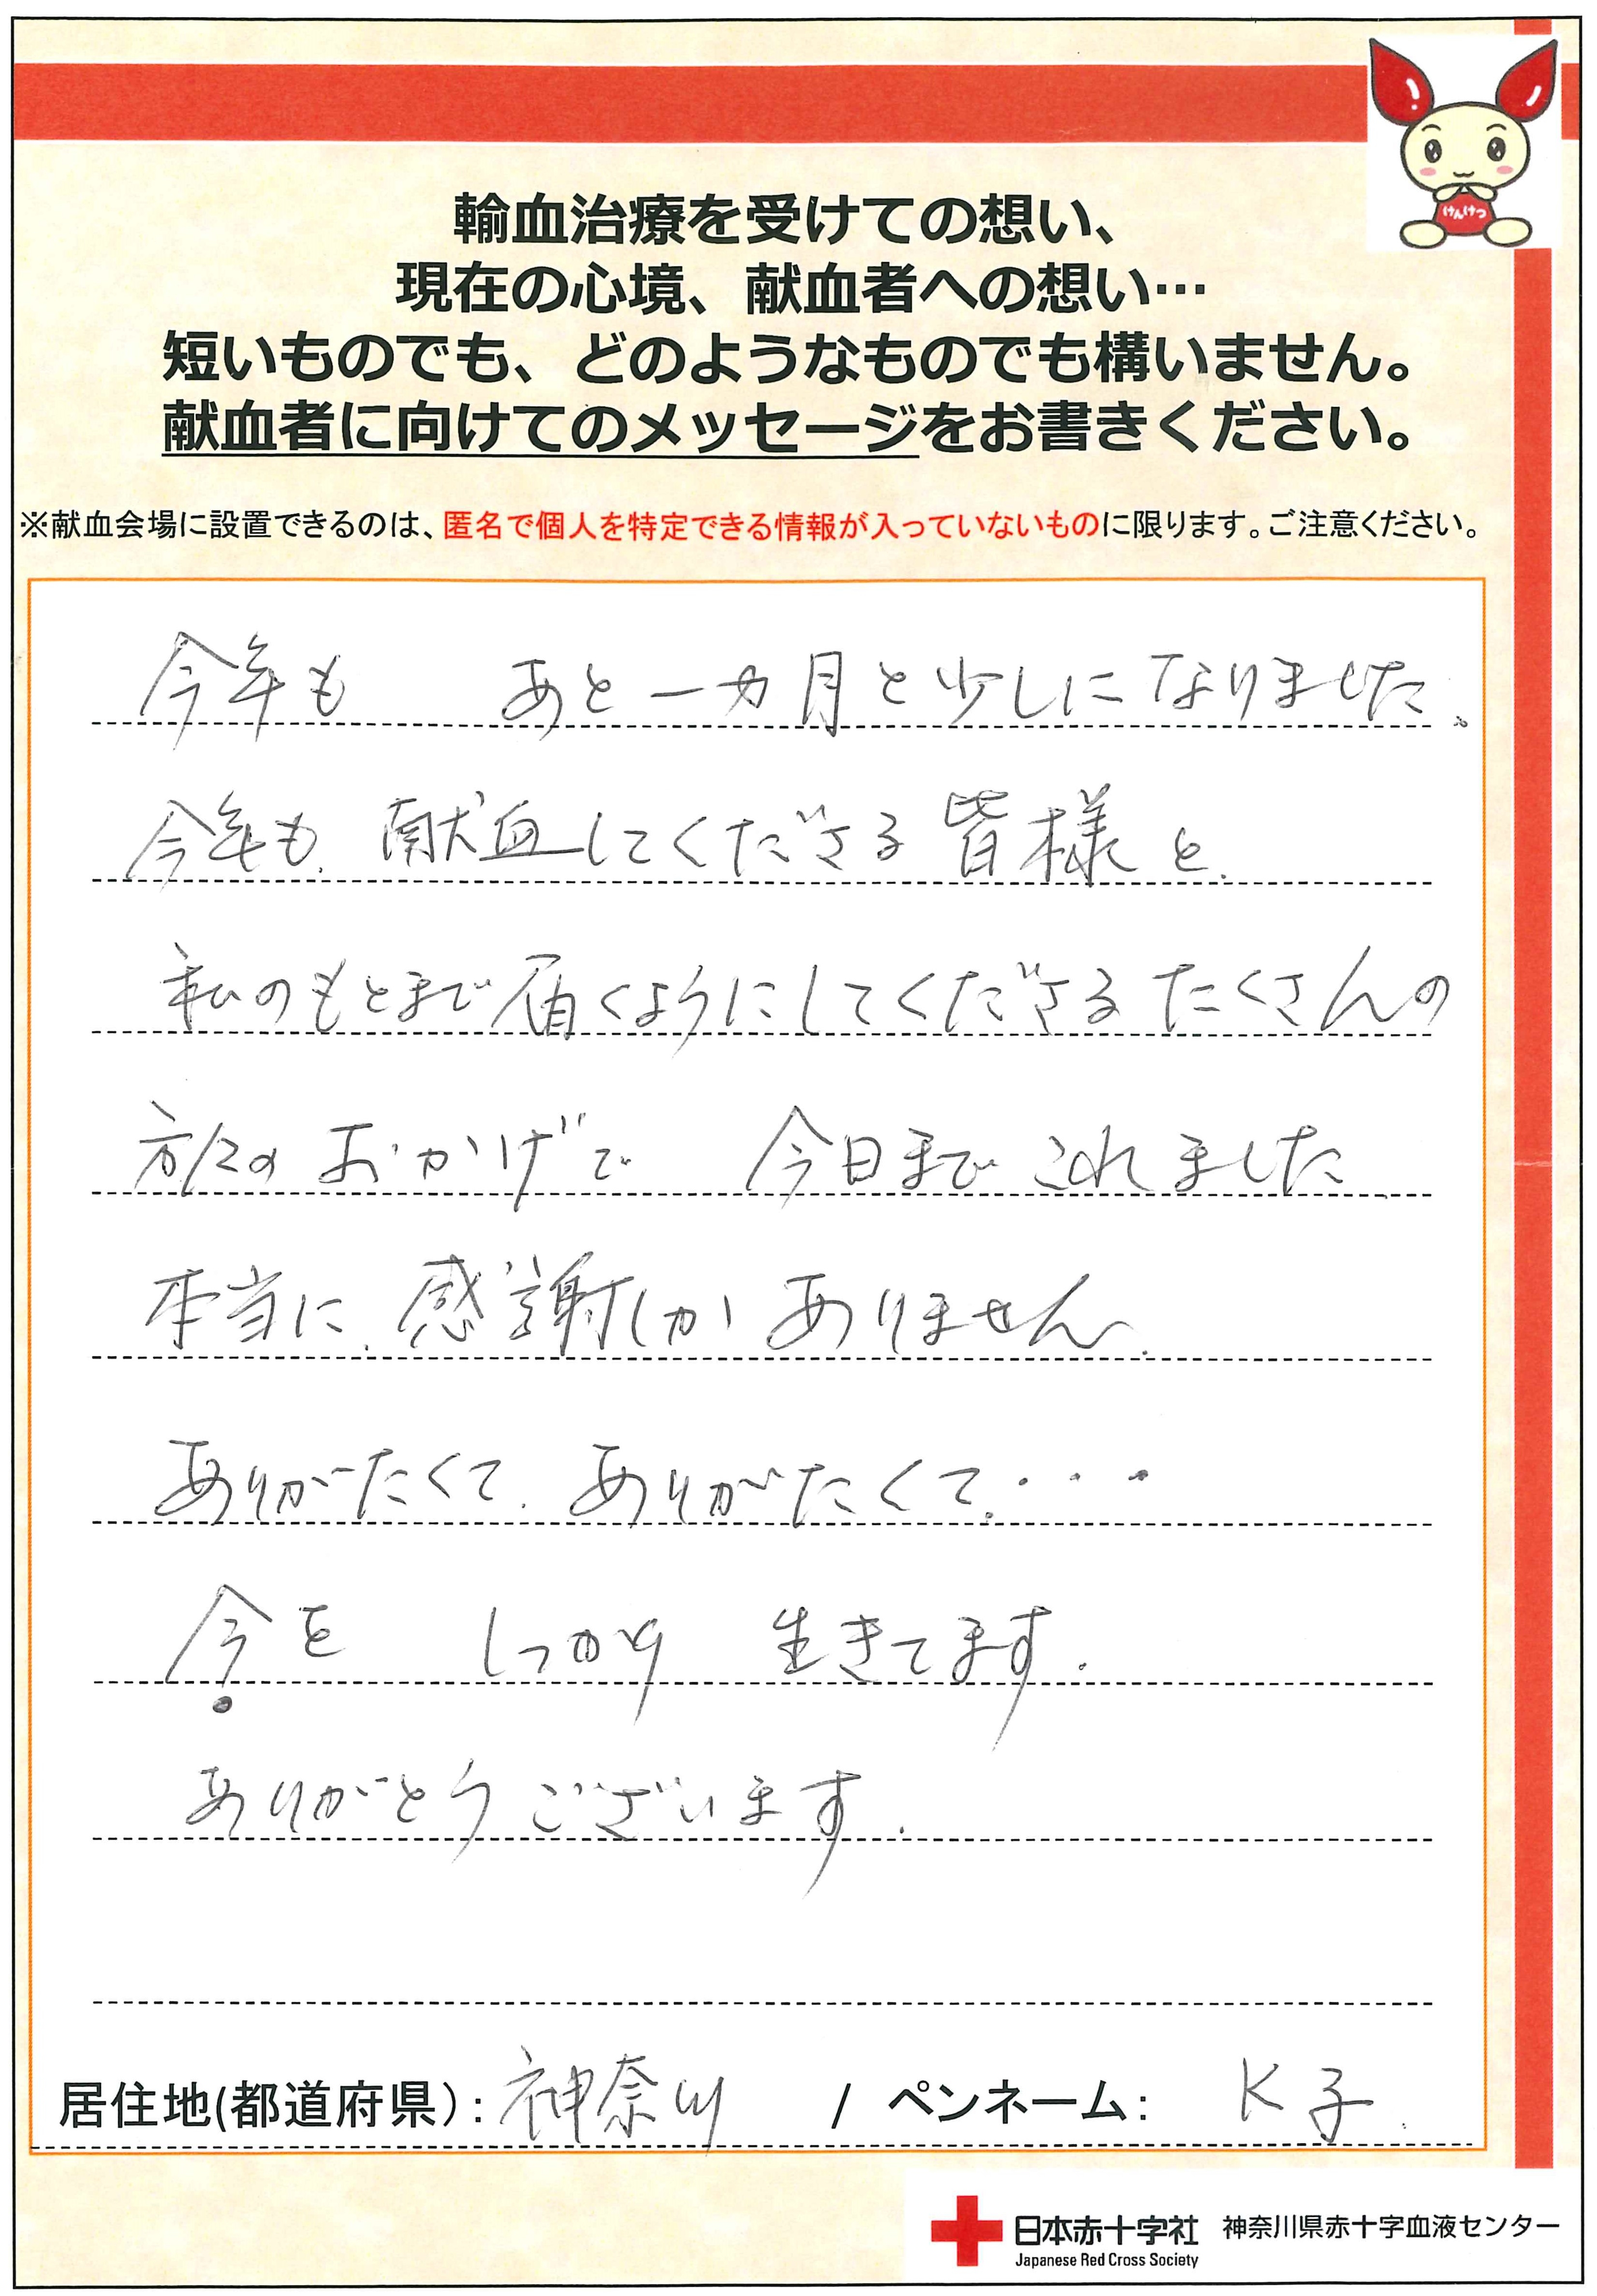 けんけつ
輸血治療を受けての想い、
現在の心境、献血者への想い…
短いものでも、どのようなものでも構いません。
献血者に向けてのメッセージをお書きください。
※献血会場に設置できるのは、匿名で個人を特定できる情報が入っていないものに限ります。ご注意ください。
今年も あと一カ月と少しになりました。
今年も、献血してくださる皆様と、
私のもとまで届くようにしてくださるたくさんの
方々のおかげで 今日までこれました
本当に、感謝しかありません、
ありがたくて、ありがたくて、・・・
今を しっかり 生きてます.
ありがとうございます.
居住地(都道府県):神奈川 / ペンネーム: K子.
日本赤十字社 神奈川県赤十字血液センター
Japanese Red Cross Society